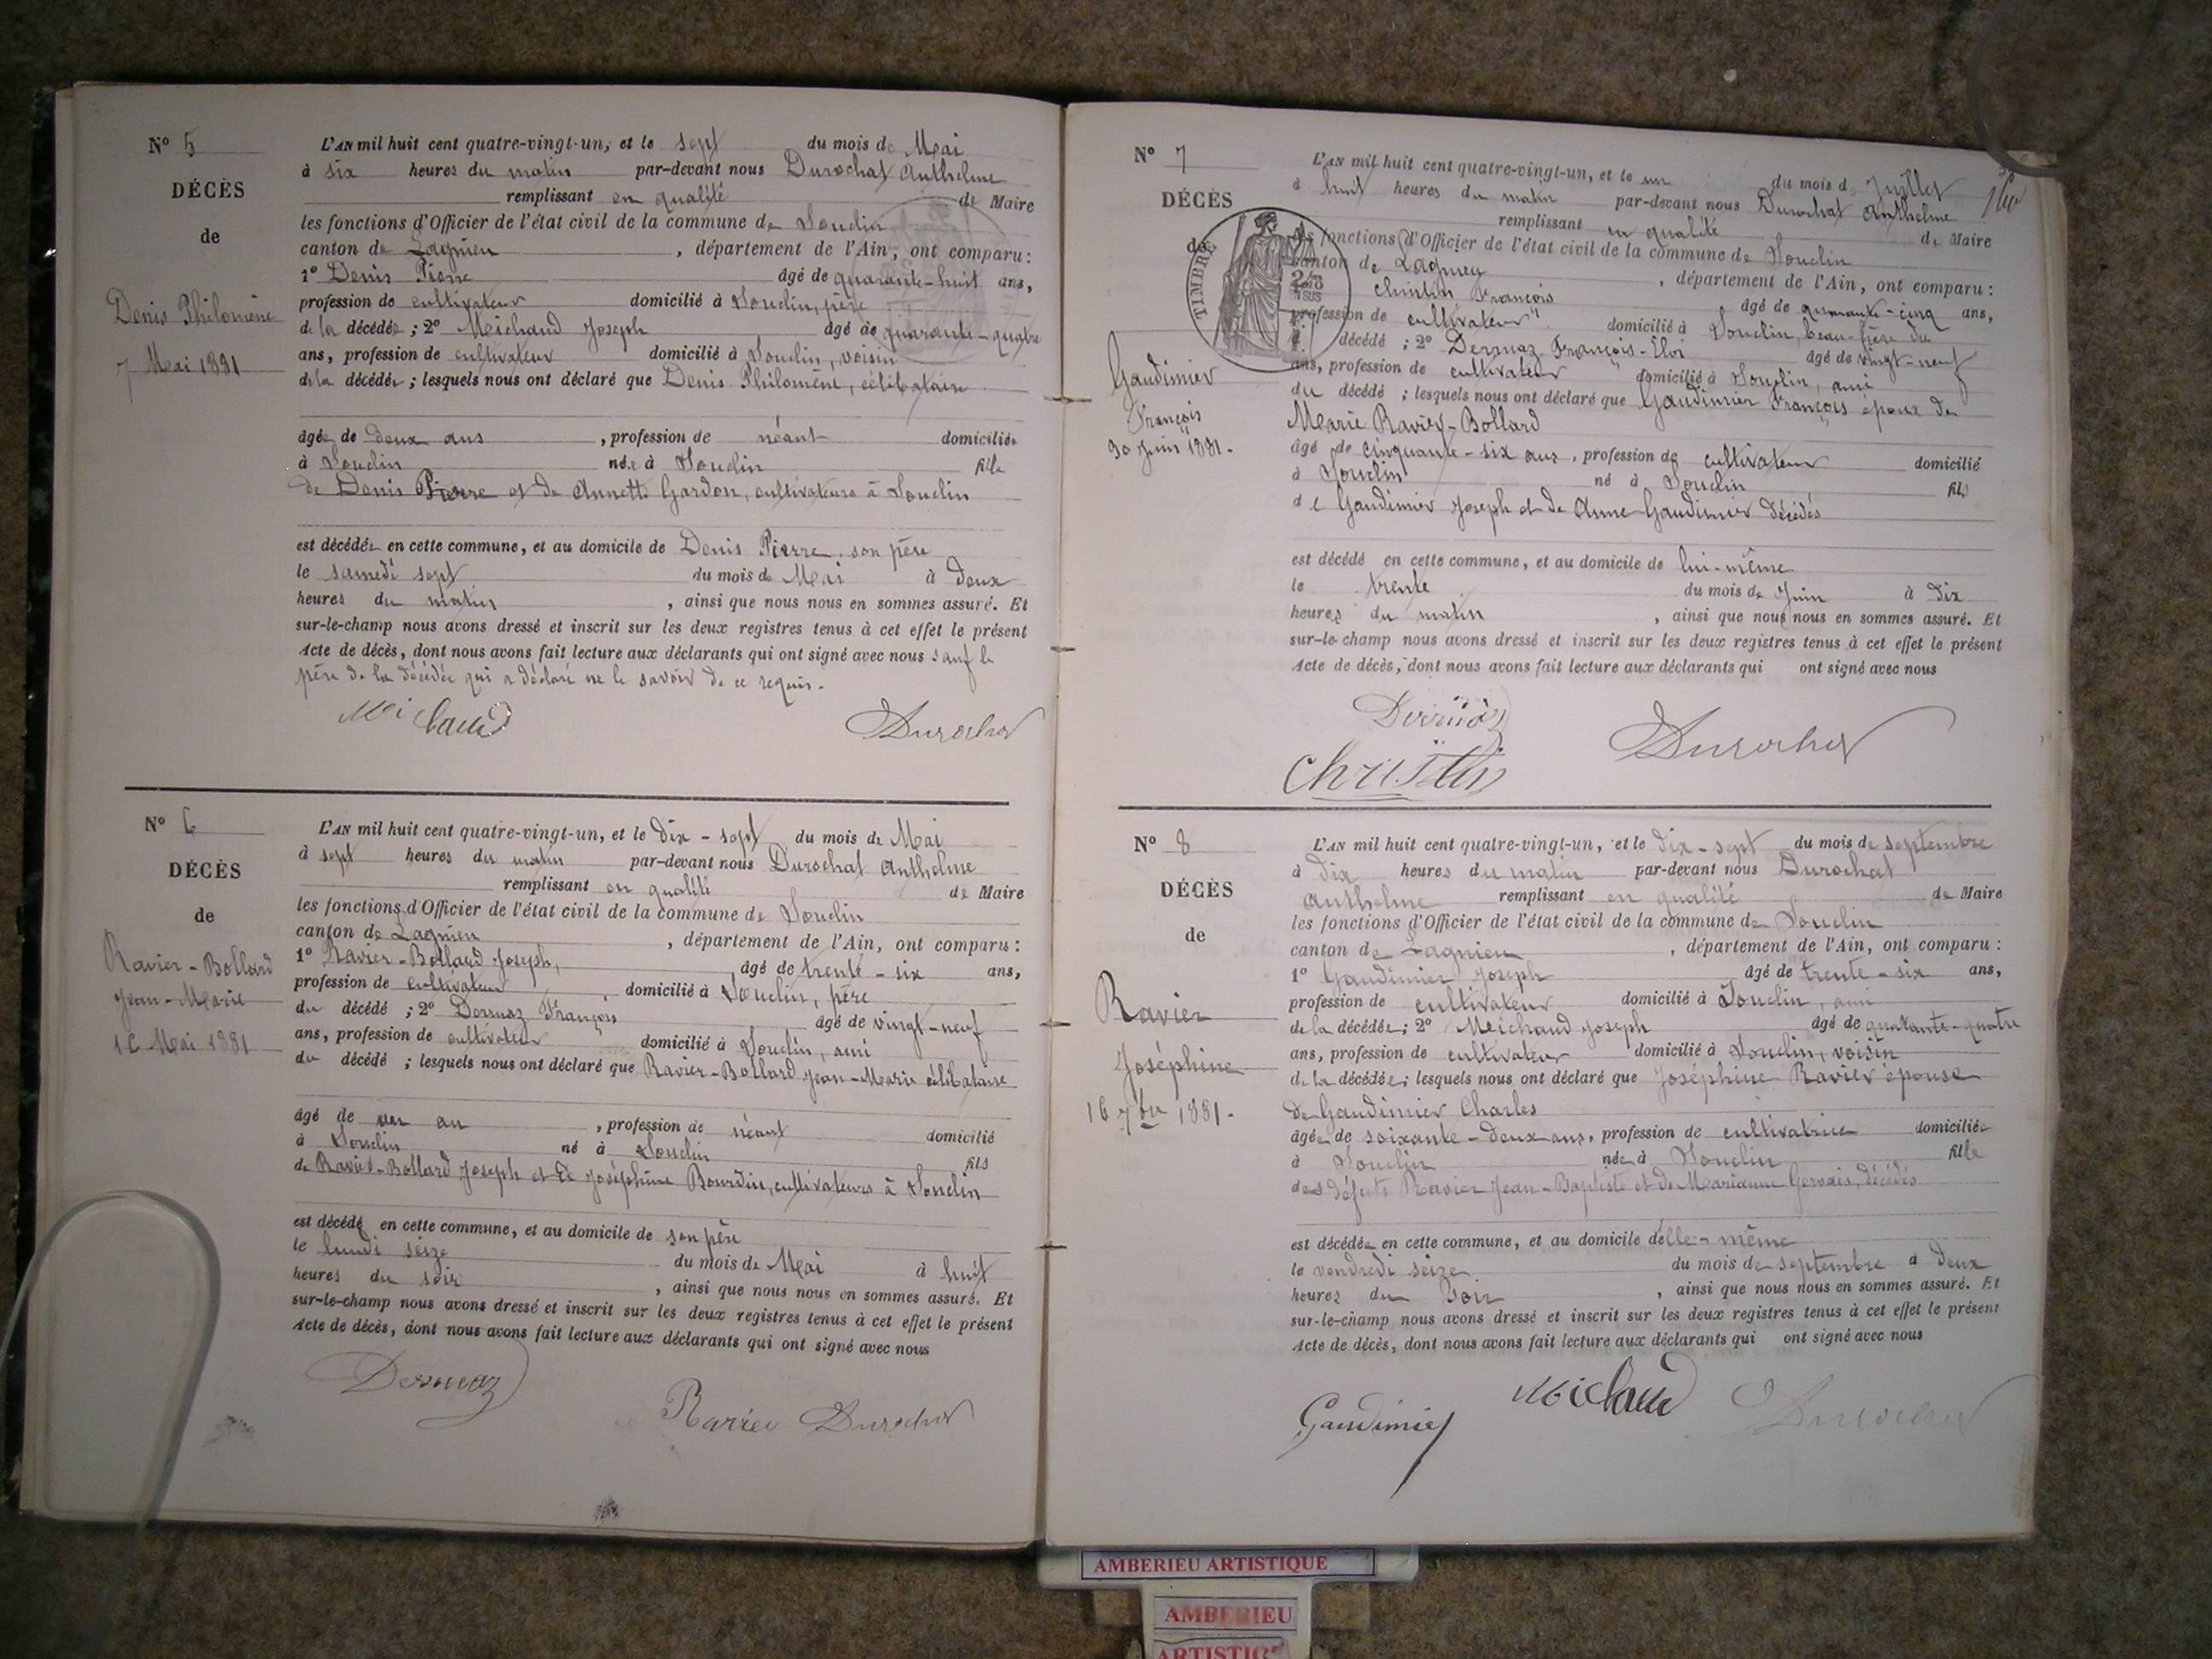 N° 5
DÉCÈS
de
Denis Philomène
7 Mai 1881
L'AN mil huit cent quatre-vingt-un, et le sept du mois de Mai
à six heures du matin par-devant nous Durochat Anthelme
remplissant en qualité de Maire
les fonctions d'Officier de l'état civil de la commune de Souclin
canton de Lagnieu, département de l'Ain, ont comparu :
1° Denis Pierre âgé de quarante-huit ans,
profession de cultivateur domicilié à Souclin, père
de la décédée ; 2° Meichaud Joseph âgé de quarante-quatre
ans, profession de cultivateur domicilié à Souclin, voisin
de la décédée ; lesquels nous ont déclaré que Denis Philomène, célibataire
âgée de deux ans, profession de néant domiciliée
à Souclin née à Souclin fille
de Denis Pierre et de Annette Gardon, cultivateurs à Souclin
est décédée en cette commune, et au domicile de Denis Pierre, son père
le samedi sept du mois de Mai à deux
heures du matin, ainsi que nous nous en sommes assuré. Et
sur-le-champ nous avons dressé et inscrit sur les deux registres tenus à cet effet le présent
Acte de décès, dont nous avons fait lecture aux déclarants qui ont signé avec nous sauf le
père de la décédée qui a déclaré ne le savoir de ce requis.
Michaud Durochat
N° 6
DÉCÈS
de
Ravier-Bollard
Jean-Marie
16 Mai 1881
L'AN mil huit cent quatre-vingt-un, et le dix-sept du mois de Mai
à sept heures du matin par-devant nous Durochat Anthelme
remplissant en qualité de Maire
les fonctions d'Officier de l'état civil de la commune de Souclin
canton de Lagnieu, département de l'Ain, ont comparu :
1° Ravier-Bollard Joseph, âgé de trente-six ans,
profession de cultivateur, domicilié à Souclin, père
du décédé ; 2° Dermaz François âgé de vingt-neuf
ans, profession de cultivateur domicilié à Souclin, ami
du décédé ; lesquels nous ont déclaré que Ravier-Bollard Jean-Marie célibataire
âgé de un an, profession de néant domicilié
à Souclin né à Souclin fils
de Ravier-Bollard Joseph et de Joséphine Bourdin, cultivateurs à Souclin
est décédé en cette commune, et au domicile de son père
le lundi seize du mois de Mai à huit
heures du soir, ainsi que nous nous en sommes assuré. Et
sur-le-champ nous avons dressé et inscrit sur les deux registres tenus à cet effet le présent
Acte de décès, dont nous avons fait lecture aux déclarants qui ont signé avec nous
Dermaz
Ravier Durochat
N° 7
DÉCÈS
de
TIMBRE
Gaudimier
François
30 Juin 1881.
L'AN mil huit cent quatre-vingt-un, et le un du mois de Juillet
à huit heures du matin par-devant nous Durochat Anthelme
remplissant en qualité de Maire
les fonctions d'Officier de l'état civil de la commune de Souclin
canton de Lagnieu, département de l'Ain, ont comparu :
Christin François âgé de quarante-cinq ans,
profession de cultivateur domicilié à Souclin, beau-frère du
décédé ; 2° Dermaz François-Eloi âgé de vingt-neuf
ans, profession de cultivateur domicilié à Souclin, ami
du décédé ; lesquels nous ont déclaré que Gaudimier François époux de
Marie Ravier-Bollard
âgé de cinquante-six ans, profession de cultivateur domicilié
à Souclin né à Souclin fils
de Gaudimier Joseph et de Anne Gaudimier décédés
est décédé en cette commune, et au domicile de lui-même
le trente du mois de Juin à dix
heures du matin, ainsi que nous nous en sommes assuré. Et
sur-le-champ nous avons dressé et inscrit sur les deux registres tenus à cet effet le présent
Acte de décès, dont nous avons fait lecture aux déclarants qui ont signé avec nous
Dermaz
Christin Durochat
N° 8
DÉCÈS
de
Ravier
Joséphine
16 7bre 1881.
L'AN mil huit cent quatre-vingt-un, et le dix-sept du mois de septembre
à dix heures du matin par-devant nous Durochat
Anthelme remplissant en qualité de Maire
les fonctions d'Officier de l'état civil de la commune de Souclin
canton de Lagnieu, département de l'Ain, ont comparu :
1° Gaudimier Joseph âgé de trente-six ans,
profession de cultivateur domicilié à Souclin, ami
de la décédée ; 2° Meichaud Joseph âgé de quarante-quatre
ans, profession de cultivateur domicilié à Souclin, voisin
de la décédée ; lesquels nous ont déclaré que Joséphine Ravier épouse
de Gaudimier Charles
âgée de soixante-deux ans, profession de cultivatrice domiciliée
à Souclin née à Souclin fille
des défunts Ravier Jean-Baptiste et de Marianne Gervais, décédés
est décédée en cette commune, et au domicile d'elle-même
le vendredi seize du mois de septembre à deux
heures du soir, ainsi que nous nous en sommes assuré. Et
sur-le-champ nous avons dressé et inscrit sur les deux registres tenus à cet effet le présent
Acte de décès, dont nous avons fait lecture aux déclarants qui ont signé avec nous
Gaudimier Michaud Durochat
AMBERIEU ARTISTIQUE
AMBERIEU
ARTISTIQUE